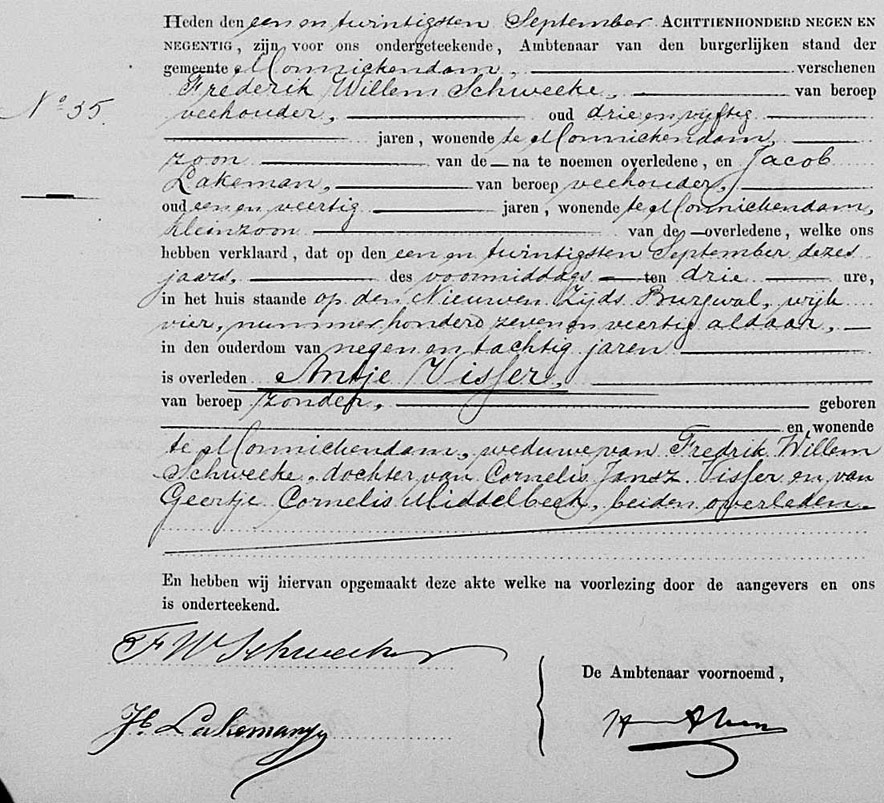 Heden den een en twintigsten September ACHTTIENHONDERD NEGEN EN
NEGENTIG, zijn voor ons ondergeteekende, Ambtenaar van den burgerlijken stand der
gemeente Monnickendam, verschenen
Frederik Willem Schweeke, van beroep
N° 35.
veehouder, oud drie en vijftig
jaren, wonende te Monnickendam,
zoon van de na te noemen overledene, en Jacob
Lakeman, van beroep veehouder,
oud een en veertig jaren, wonende te Monnickendam,
kleinzoon van de overledene, welke ons
hebben verklaard, dat op den een en twintigsten September dezes
jaars, des voormiddags ten drie ure,
in het huis staande op den Nieuwen Zijds Burgwal, wijk
vier, nummer honderd zeven en veertig aldaar,
in den ouderdom van negen en tachtig jaren
is overleden Antje Visser,
van beroep zonder, geboren
en wonende
te Monnickendam, weduwe van Fredrik Willem
Schweeke, dochter van Cornelis Jansz Visser en van
Geertje Cornelis Middelbeek, beiden overleden.
En hebben wij hiervan opgemaakt deze akte welke na voorlezing door de aangevers en ons
is onderteekend.
F W Schweeke
De Ambtenaar voornoemd,
Jb Lakeman